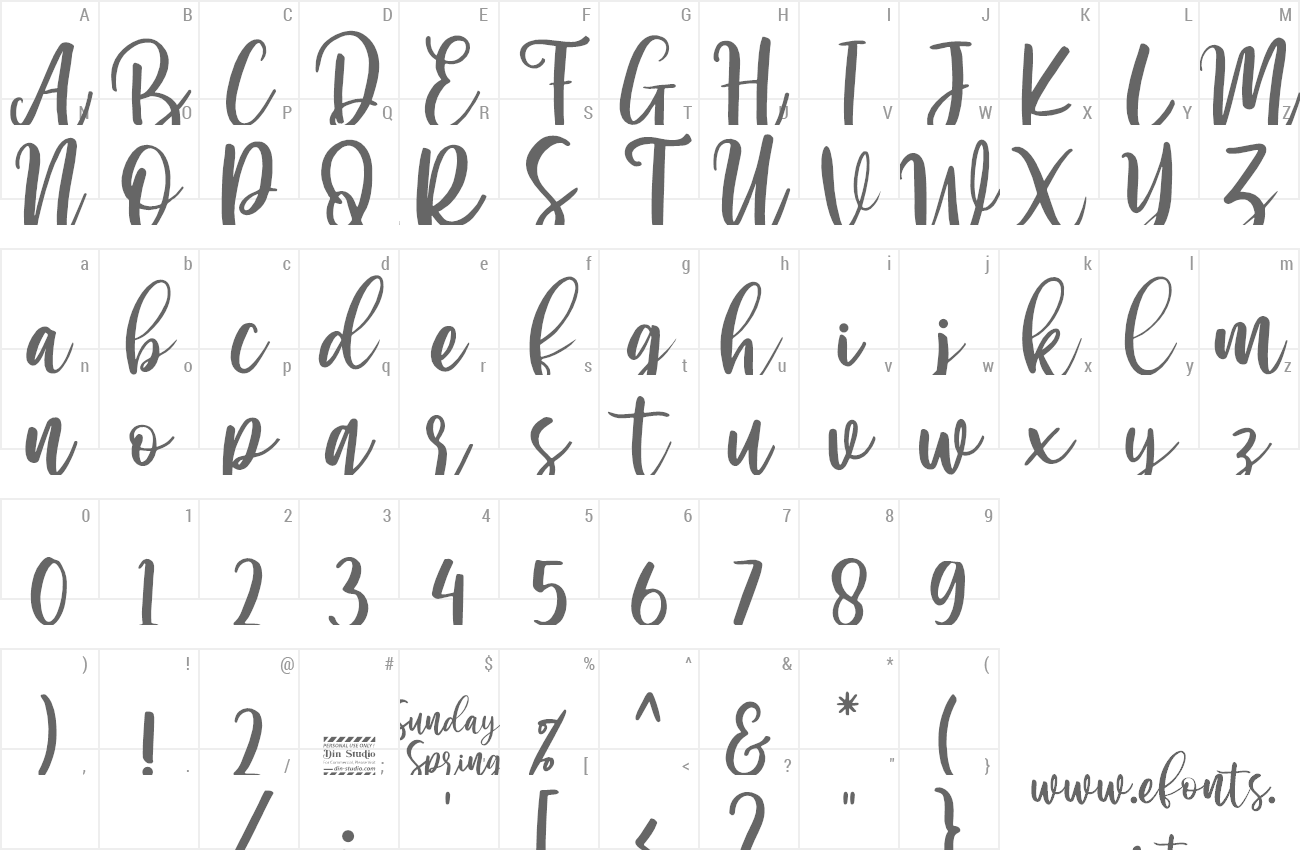 A B C D E F G H I J K L M
A B C D E F G H I J K L M
N O P Q R S T U V W X Y Z
N O P Q R S T U V W X Y Z
a b c d e f g h i j k l m
a b c d e f g h i j k l m
n o p q r s t u v w x y z
n o p q r s t u v w x y z
0 1 2 3 4 5 6 7 8 9
0 1 2 3 4 5 6 7 8 9
) ! @ # $ % ^ & * (
) ! 2
PERSONAL USE ONLY!
Din Studio
din-studio.com
Sunday
Spring
% ^ & * (
, . / ; [ < ? " }
/ . ' [ < ? " }
www.efonts.